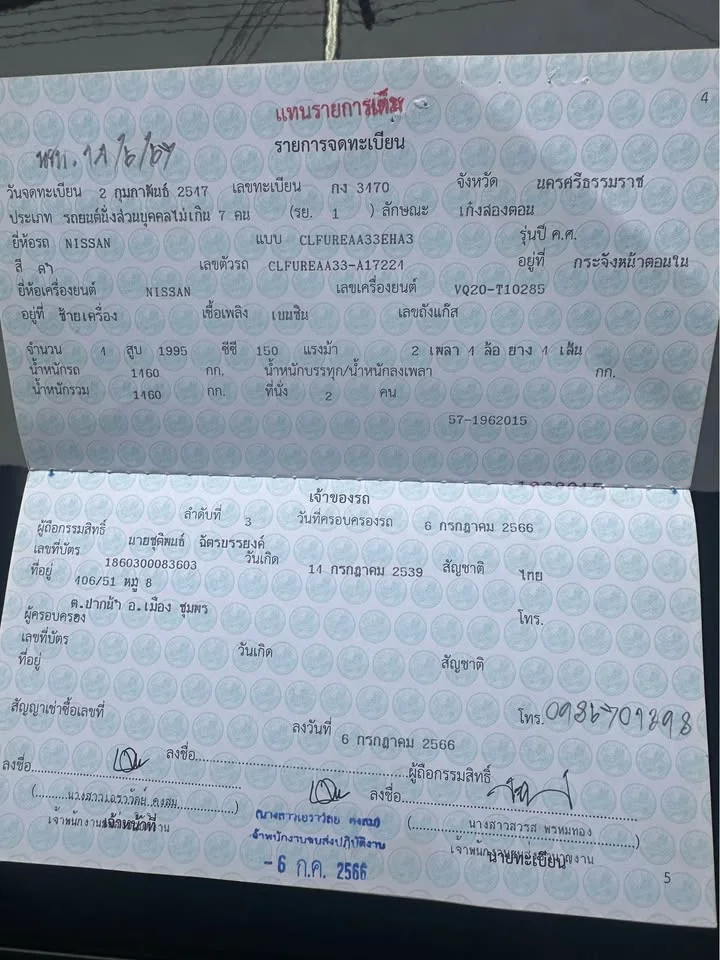 4
แทนรายการเต็ม
รายการจดทะเบียน
วันจดทะเบียน 2 กุมภาพันธ์ 2547 เลขทะเบียน กง 3470 จังหวัด นครศรีธรรมราช
ประเภท รถยนต์นั่งส่วนบุคคลไม่เกิน 7 คน (รย. 1 ) ลักษณะ เก๋งสองตอน
ยี่ห้อรถ NISSAN แบบ CLFUREAA33EHA3 รุ่นปี ค.ศ.
สี ดำ เลขตัวรถ CLFUREAA33-A17221 อยู่ที่ กระจังหน้าตอนใน
ยี่ห้อเครื่องยนต์ NISSAN เลขเครื่องยนต์ VQ20-T10285
อยู่ที่ ซ้ายเครื่อง เชื้อเพลิง เบนซิน เลขถังแก๊ส
จำนวน สูบ 1995 ซีซี 150 แรงม้า 2 เพลา 4 ล้อ ยาง 4 เส้น
น้ำหนักรถ 1460 กก. น้ำหนักบรรทุก/น้ำหนักลงเพลา กก.
น้ำหนักรวม 1460 กก. ที่นั่ง 2 คน
57-1962015
เจ้าของรถ
ลำดับที่ 3 วันที่ครอบครองรถ 6 กรกฎาคม 2566
ผู้ถือกรรมสิทธิ์ นายชุติพนธ์ ฉัตรบรรยงค์
เลขที่บัตร 1860300083603 วันเกิด 14 กรกฎาคม 2539 สัญชาติ ไทย
ที่อยู่ 406/51 หมู่ 8
ต.ปากน้ำ อ.เมือง ชุมพร โทร.
ผู้ครอบครอง
เลขที่บัตร วันเกิด สัญชาติ
ที่อยู่
สัญญาเช่าซื้อเลขที่ ลงวันที่ 6 กรกฎาคม 2566 โทร.
ลงชื่อ ลงชื่อ ผู้ถือกรรมสิทธิ์
ลงชื่อ
นางสาวสวรส พรหมทอง
เจ้าหน้าที่ นายทะเบียน
-6 ก.ค. 2566
5